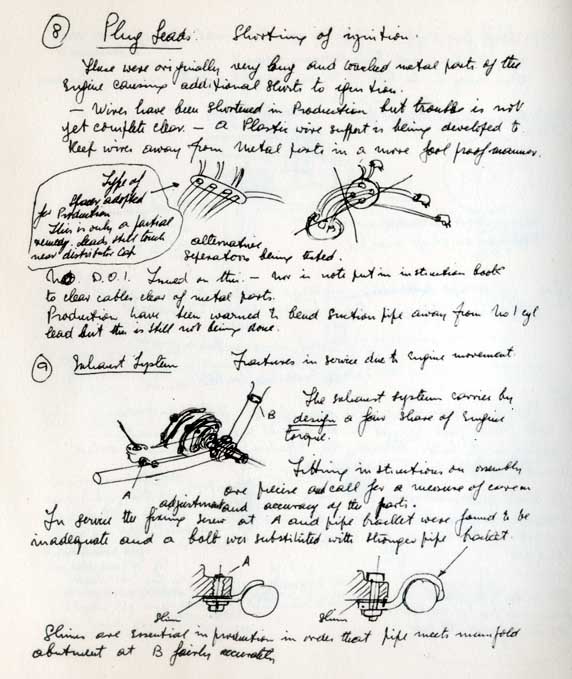 8 Plug Leads. Shorting of ignition.
These were originally very long and touched metal parts of the
Engine causing additional shorts to ignition.
— Wires have been shortened in Production but trouble is not
yet complete clear. — A Plastic wire support is being developed to
keep wires away from metal parts in a more fool proof manner.
Type of
Spacer adopted
for Production
This is only a partial
remedy. Leads still touch
near distributor Cap
alternative
seperators being tested.
No. D.O.I. Issued on this. — nor is note put in instruction book
to clear cables clear of metal parts.
Production have been warned to bend suction pipe away from No 1 cyl
lead but this is still not being done.
9 Exhaust System Fractures in service due to engine movement.
B
The exhaust system carries by
design a fair share of Engine
torque.
A
Fitting instructions on assembly
are precise and call for a measure of care in
adjustment and accuracy of the parts.
In service the fixing screw at A and pipe bracket were found to be
inadequate and a bolt was substituted with stronger pipe bracket.
A
Shim
Shim
Shims are essential in production in order that pipe meets manifold
abutment at B fairly accurately